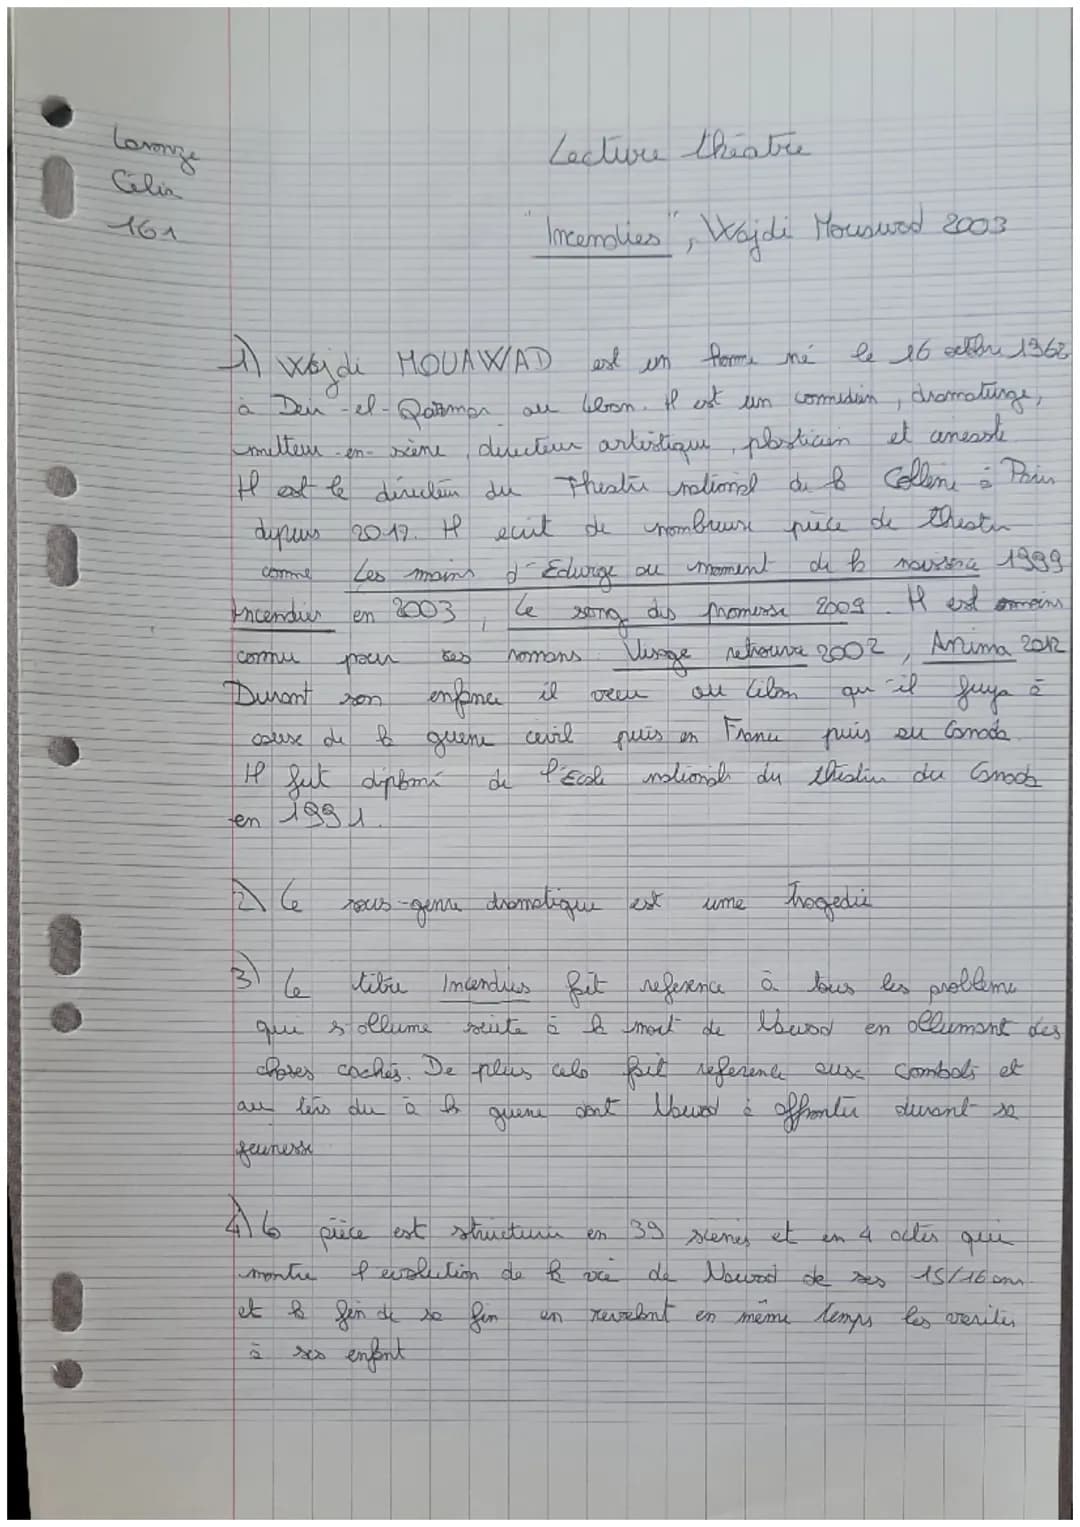 Laronze
Célia
161
Lecture théatre
"Incendies", Wajdi Mouswad 2003
1) Wajdi MOUAWAD est un homme né le 16 octobre 1968
à Deir-el-Qamar au Liban. Il est un comédien, dramaturge,
metteur-en-scène, directeur artistique, plasticien et cineaste
Il est le directeur du Theatre national de la Colline à Paris
depuis 2017. Il ecrit de nombreuse pièce de theatre
comme Les mains d'Edwige au moment de la naissance 1999
Incendies en 2003, Le sang des promesse 2009. Il est moins
connu pour ses romans. Visage retrouve 2002, Anima 2012
Durant son enfance il vecu au Liban qu'il fuya à
cause de la guerre civil puis en France puis au Canada.
Il fut diplomé de l'Ecole nationale du théatre du Canada
en 1991.
2) Le sous-genre dramatique est une tragedie
3) Le titre Incendies fait reference à tous les probleme
qui s'allume suite à la mort de Nawal en allumant des
choses cachés. De plus cela fait reference aux combats et
au tirs du à la guerre dont Nawal à affronter durant sa
jeunesse
4) La pièce est structuré en 39 scenes et en 4 actes qui
montre l'evolution de la vie de Nawal de ses 15/16 ans
et la fin de sa fin en revelant en même temps les verites
à ses enfant